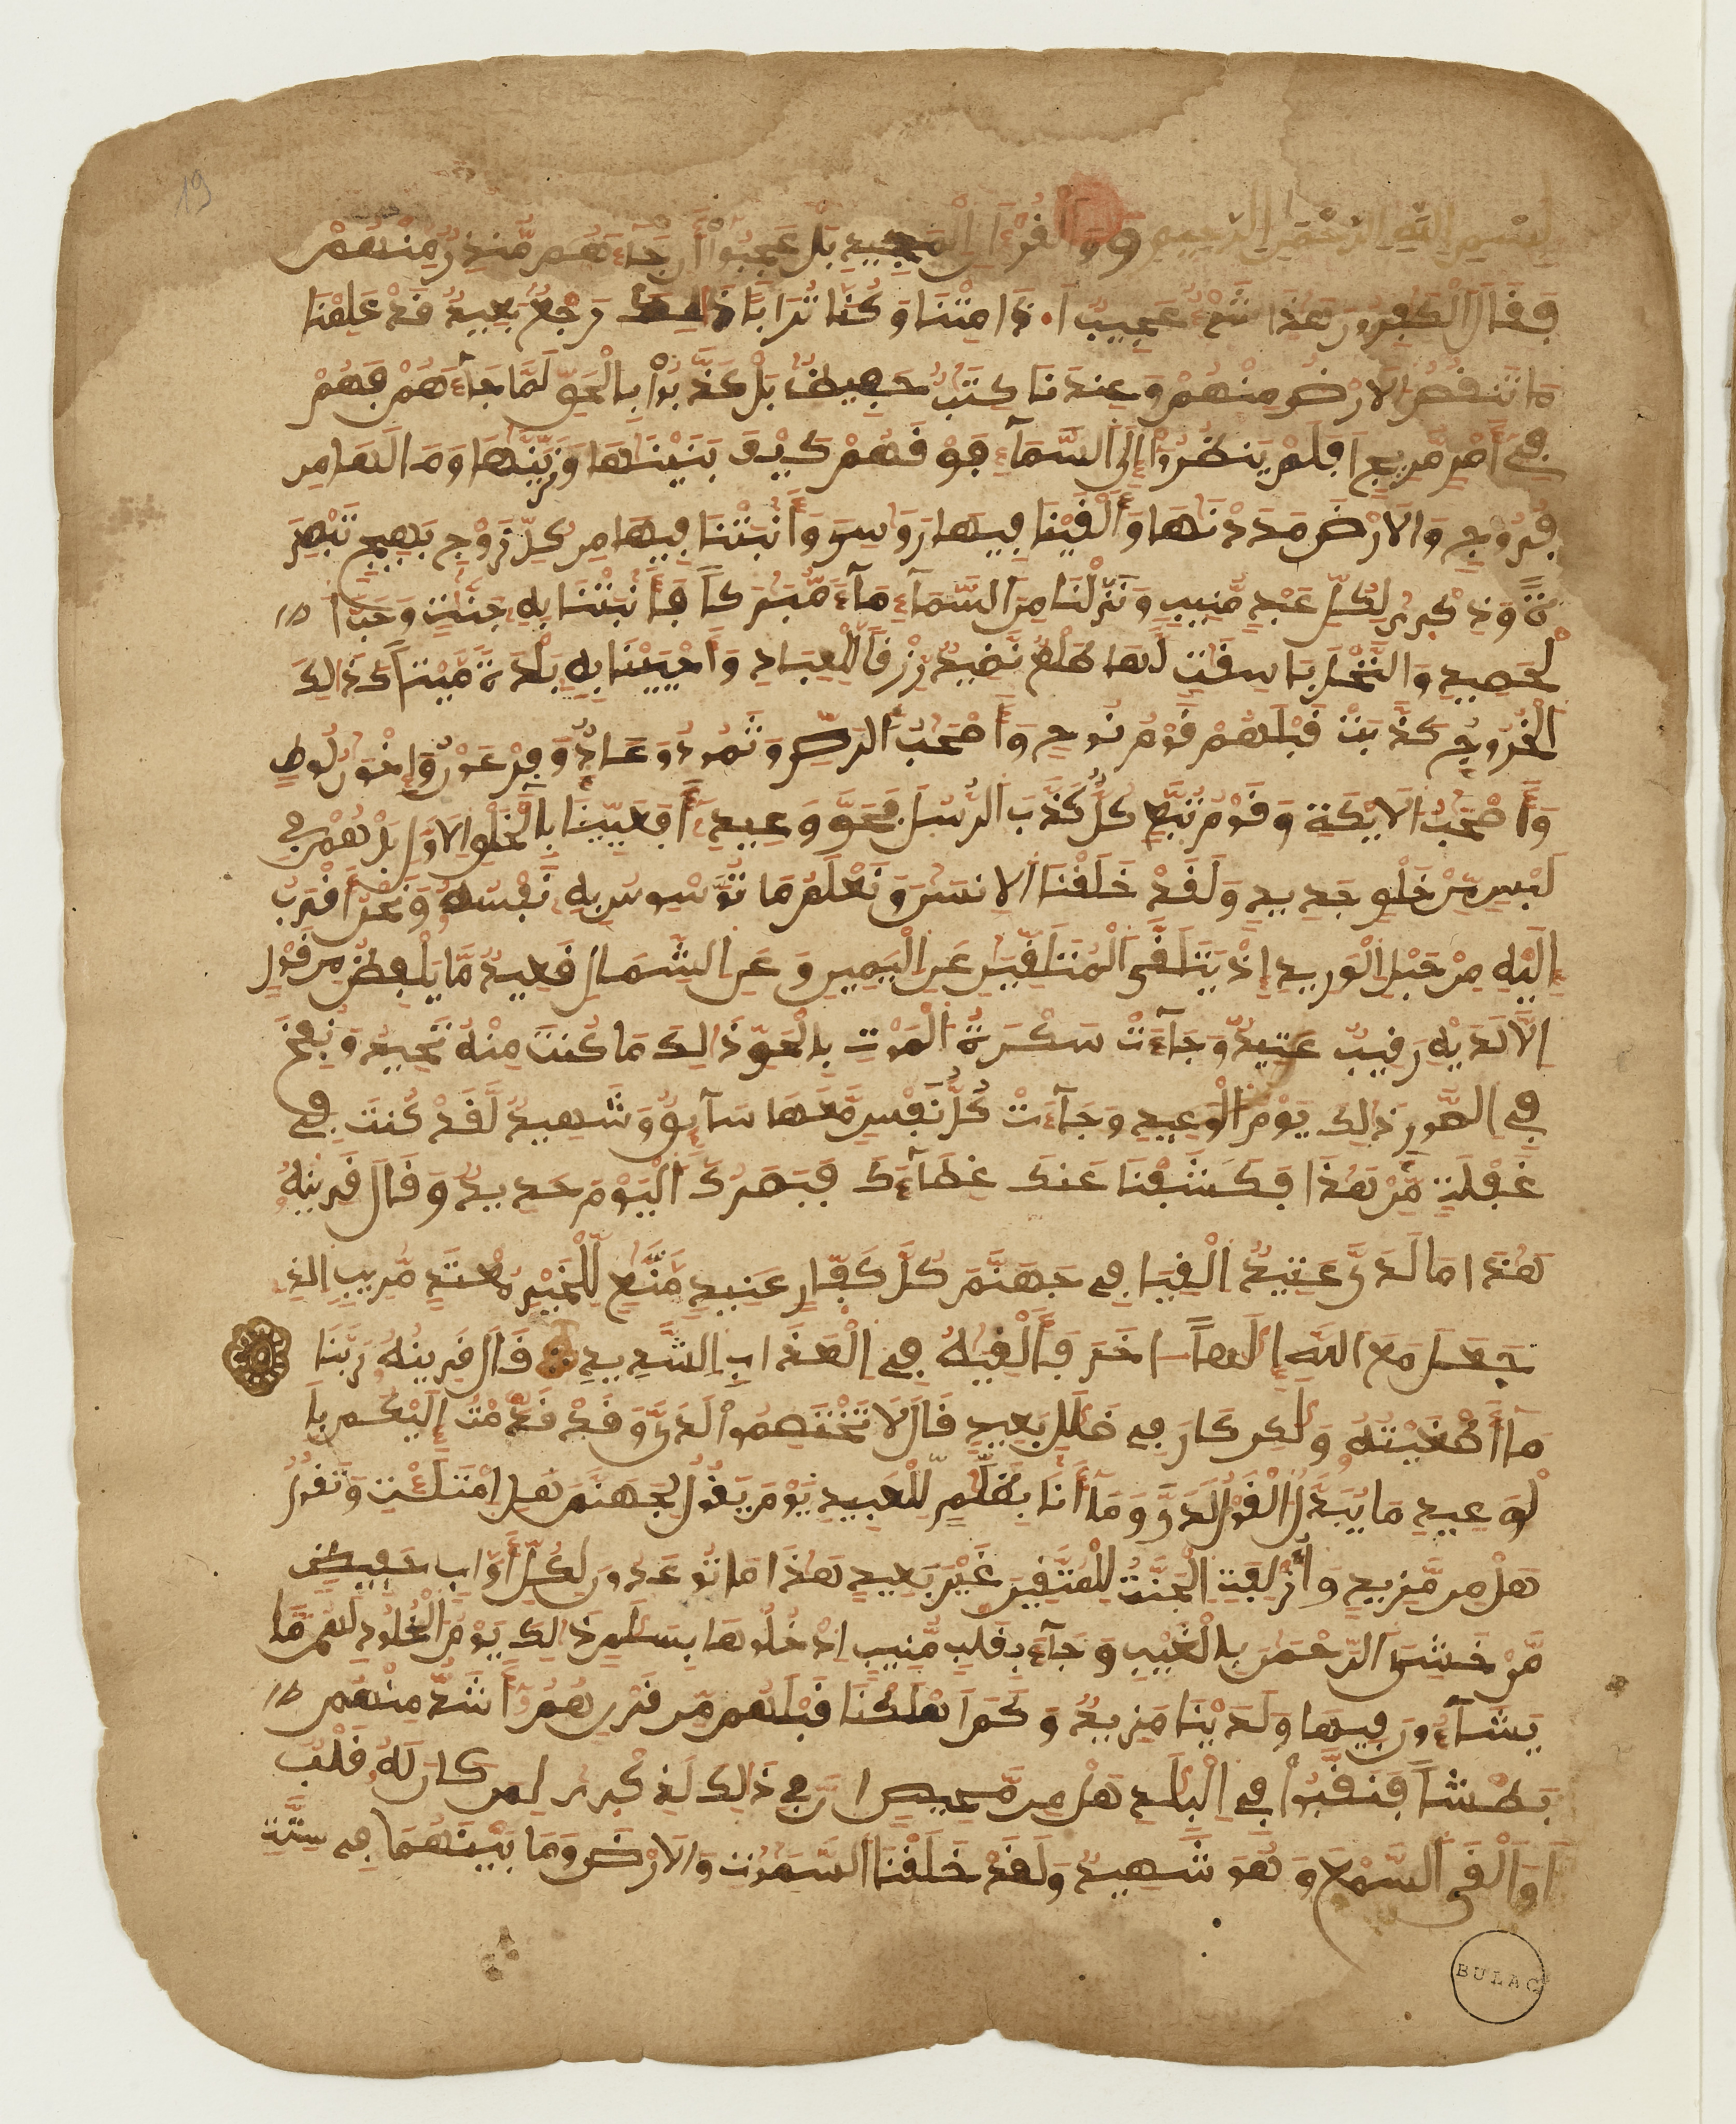 19
بِسْمِ اِللَّهِ اِلرَّحْمَٰنِ اِلرَّحِيمِ قٓ وَالْقُرْءَانِ اِلْمَجِيدِ بَلْ عَجِبُوٓاْ أَن جَآءَهُم مُّنذِرٌ مِّنْهُمْ
فَقَالَ اَلْكَٰفِرُونَ هَٰذَا شَےْءٌ عَجِيبٌ اَ.ذَا مِتْنَا وَكُنَّا تُرَاباً ذَٰلِكَ رَجْعٌ بَعِيدٌ قَدْ عَلِمْنَا
مَا تَنقُصُ اُلَارْضُ مِنْهُمْ وَعِندَنَا كِتَٰبٌ حَفِيظٌ بَلْ كَذَّبُواْ بِالْحَقِّ لَمَّا جَآءَهُمْ فَهُمْ
فِےٓ أَمْرٍ مَّرِيجٍ اَفَلَمْ يَنظُرُوٓاْ إِلَى اَلسَّمَآءِ فَوْقَهُمْ كَيْفَ بَنَيْنَٰهَا وَزَيَّنَّٰهَا وَمَا لَهَا مِن
فُرُوجٍ وَالَارْضَ مَدَدْنَٰهَا وَأَلْقَيْنَا فِيهَا رَوَٰسِيَ وَأَنۢبَتْنَا فِيهَا مِن كُلِّ زَوْجٍ بَهِيجٍ تَبْصِرَ
ةً وَذِكْرَىٰ لِكُلِّ عَبْدٍ مُّنِيبٍ وَنَزَّلْنَا مِنَ اَلسَّمَآءِ مَآءً مُّبَٰرَكاً فَأَنۢبَتْنَا بِهِۦ جَنَّٰتٍ وَحَبَّ اَ
لْحَصِيدِ وَالنَّخْلَ بَاسِقَٰتٍ لَّهَا طَلْعٌ نَّضِيدٌ رِّزْقاً لِّلْعِبَادِ وَأَحْيَيْنَا بِهِۦ بَلْدَةً مَّيْتاً كَذَٰلِكَ
اَلْخُرُوجُ كَذَّبَتْ قَبْلَهُمْ قَوْمُ نُوحٍ وَأَصْحَٰبُ اُلرَّسِّ وَثَمُودُ وَعَادٌ وَفِرْعَوْنُ وَإِخْوَٰنُ لُوطٍ
وَأَصْحَٰبُ اُلَايْكَةِ وَقَوْمُ تُبَّعٍ كُلٌّ كَذَّبَ اَلرُّسُلَ فَحَقَّ وَعِيدِۦٓ أَفَعَيِينَا بِالْخَلْقِ اِلَاوَّلِ بَلْ هُمْ فِے
لَبْسٍ مِّنْ خَلْقٍ جَدِيدٍ وَلَقَدْ خَلَقْنَا اَلِانسَٰنَ وَنَعْلَمُ مَا تُوَسْوِسُ بِهِۦ نَفْسُهُۥ وَنَحْنُ أَقْرَبُ
إِلَيْهِ مِنْ حَبْلِ اِلْوَرِيدِ إِذْ يَتَلَقَّى اَلْمُتَلَقِّيَٰنِ عَنِ اِلْيَمِينِ وَعَنِ اِلشِّمَالِ قَعِيدٌ مَّا يَلْفِظُ مِن قَوْلٍ
اِلَّا لَدَيْهِ رَقِيبٌ عَتِيدٌ وَجَآءَتْ سَكْرَةُ اُلْمَوْتِ بِالْحَقِّ ذَٰلِكَ مَا كُنتَ مِنْهُ تَحِيدُ وَنُفِخَ
فِے اِلصُّورِ ذَٰلِكَ يَوْمُ اُلْوَعِيدِ وَجَآءَتْ كُلُّ نَفْسٍ مَّعَهَا سَآئِقٌ وَشَهِيدٌ لَّقَدْ كُنتَ فِے
غَفْلَةٍ مِّنْ هَٰذَا فَكَشَفْنَا عَنكَ غِطَآءَكَ فَبَصَرُكَ اَلْيَوْمَ حَدِيدٌ وَقَالَ قَرِينُهُۥ
هَٰذَا مَا لَدَيَّ عَتِيدٌ اَلْقِيَا فِے جَهَنَّمَ كُلَّ كَفَّارٍ عَنِيدٍ مَّنَّٰعٍ لِّلْخَيْرِ مُعْتَدٍ مُّرِيبٍ اِلذِے
جَعَلَ مَعَ اَللَّهِ إِلَٰهاً اخَرَ فَأَلْقِيَٰهُ فِے اِلْعَذَابِ اِلشَّدِيدِ قَالَ قَرِينُهُۥ رَبَّنَا
مَآ أَطْغَيْتُهُۥ وَلَٰكِن كَانَ فِے ضَلَٰلٍ بَعِيدٍ قَالَ لَا تَخْتَصِمُواْ لَدَيَّ وَقَدْ قَدَّمْتُ إِلَيْكُم بِا
لْوَعِيدِ مَا يُبَدَّلُ اُلْقَوْلُ لَدَيَّ وَمَآ أَنَا بِظَلَّٰمٍ لِّلْعَبِيدِ يَوْمَ يَقُولُ لِجَهَنَّمَ هَلِ اِمْتَلَأْتِ وَتَقُولُ
هَلْ مِن مَّزِيدٍ وَأُزْلِفَتِ اِلْجَنَّةُ لِلْمُتَّقِينَ غَيْرَ بَعِيدٍ هَٰذَا مَا تُوعَدُونَ لِكُلِّ أَوَّابٍ حَفِيظٍ
مَّنْ خَشِيَ اَلرَّحْمَٰنَ بِالْغَيْبِ وَجَآءَ بِقَلْبٍ مُّنِيبٍ اِدْخُلُوهَا بِسَلَٰمٍ ذَٰلِكَ يَوْمُ اُلْخُلُودِ لَهُم مَّا
يَشَآءُونَ فِيهَا وَلَدَيْنَا مَزِيدٌ وَكَمَ اَهْلَكْنَا قَبْلَهُم مِّن قَرْنٍ هُمُۥٓ أَشَدُّ مِنْهُم
بَطْشاً فَنَقَّبُواْ فِے اِلْبِلَٰدِ هَلْ مِن مَّحِيصٍ اِنَّ فِے ذَٰلِكَ لَذِكْرَىٰ لِمَن كَانَ لَهُۥ قَلْبٌ
اَوَ اَلْقَى اَلسَّمْعَ وَهُوَ شَهِيدٌ وَلَقَدْ خَلَقْنَا اَلسَّمَٰوَٰتِ وَالَارْضَ وَمَا بَيْنَهُمَا فِے سِتَّةِ
BULAC